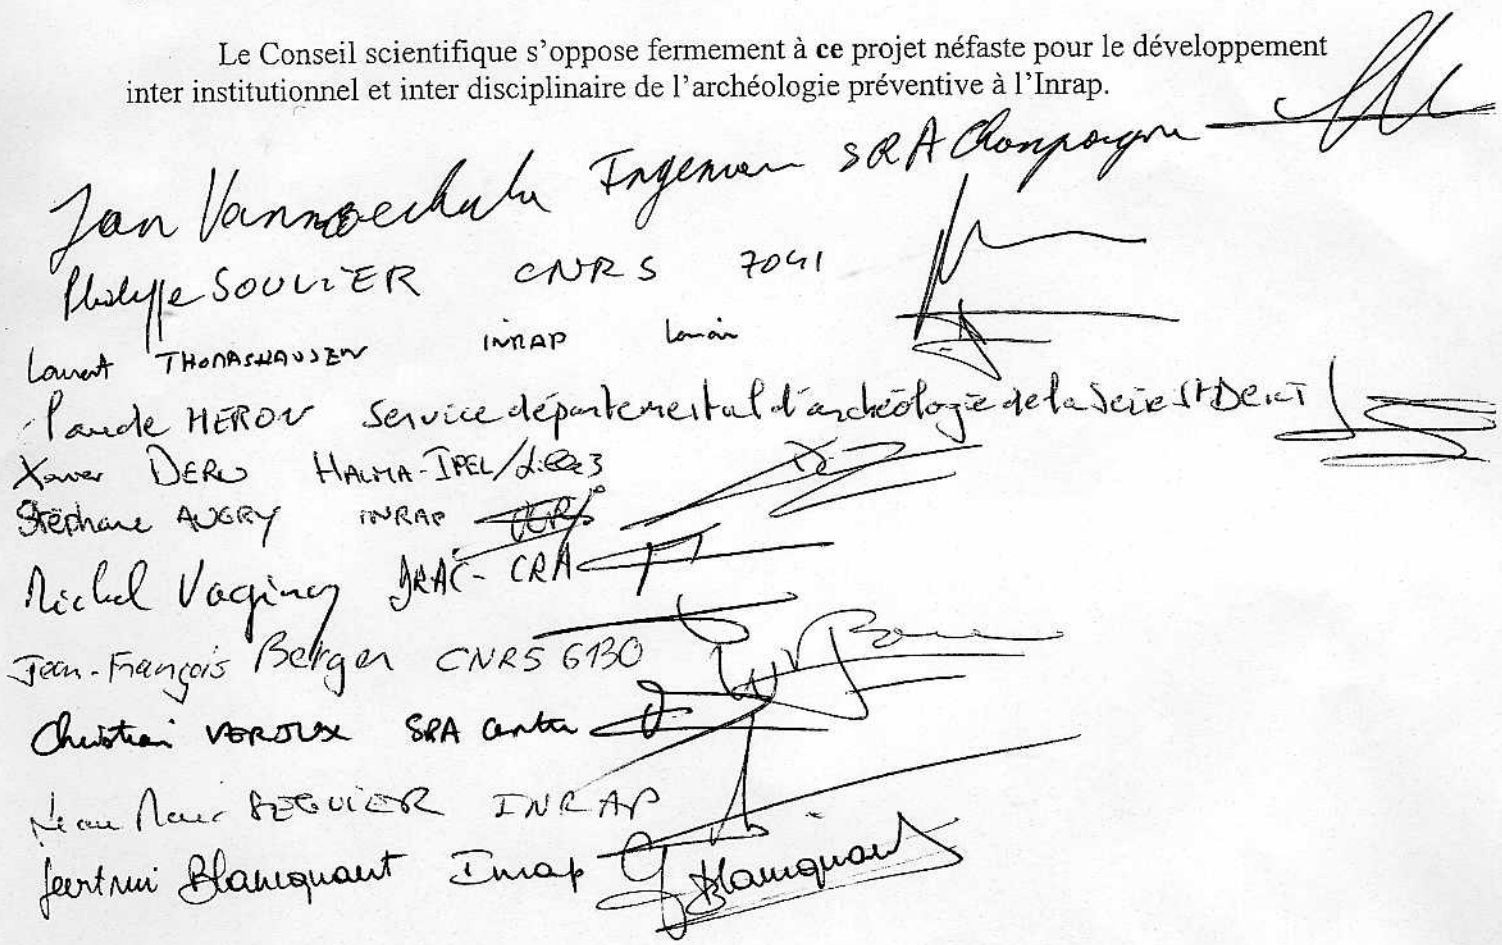 Le Conseil scientifique s’oppose fermement à ce projet néfaste pour le développement
inter institutionnel et inter disciplinaire de l’archéologie préventive à l’Inrap.
Jan SRA Champagne
Philippe SOULIER CNRS 7041
Laurent THOMASHAUSEN INRAP
HERON Service départemental d'archéologie de la Seine St Denis
Xavier DERU HALMA-IPEL/Lille3
Stéphane AUGRY INRAP
Michel Vaginay DRAC-CRA
Jean-François Berger CNRS 6130
Christian VERJUX SRA Centre
Jean Marc SEGUIER INRAP
Geertrui Blancquaert Inrap Blancquaert